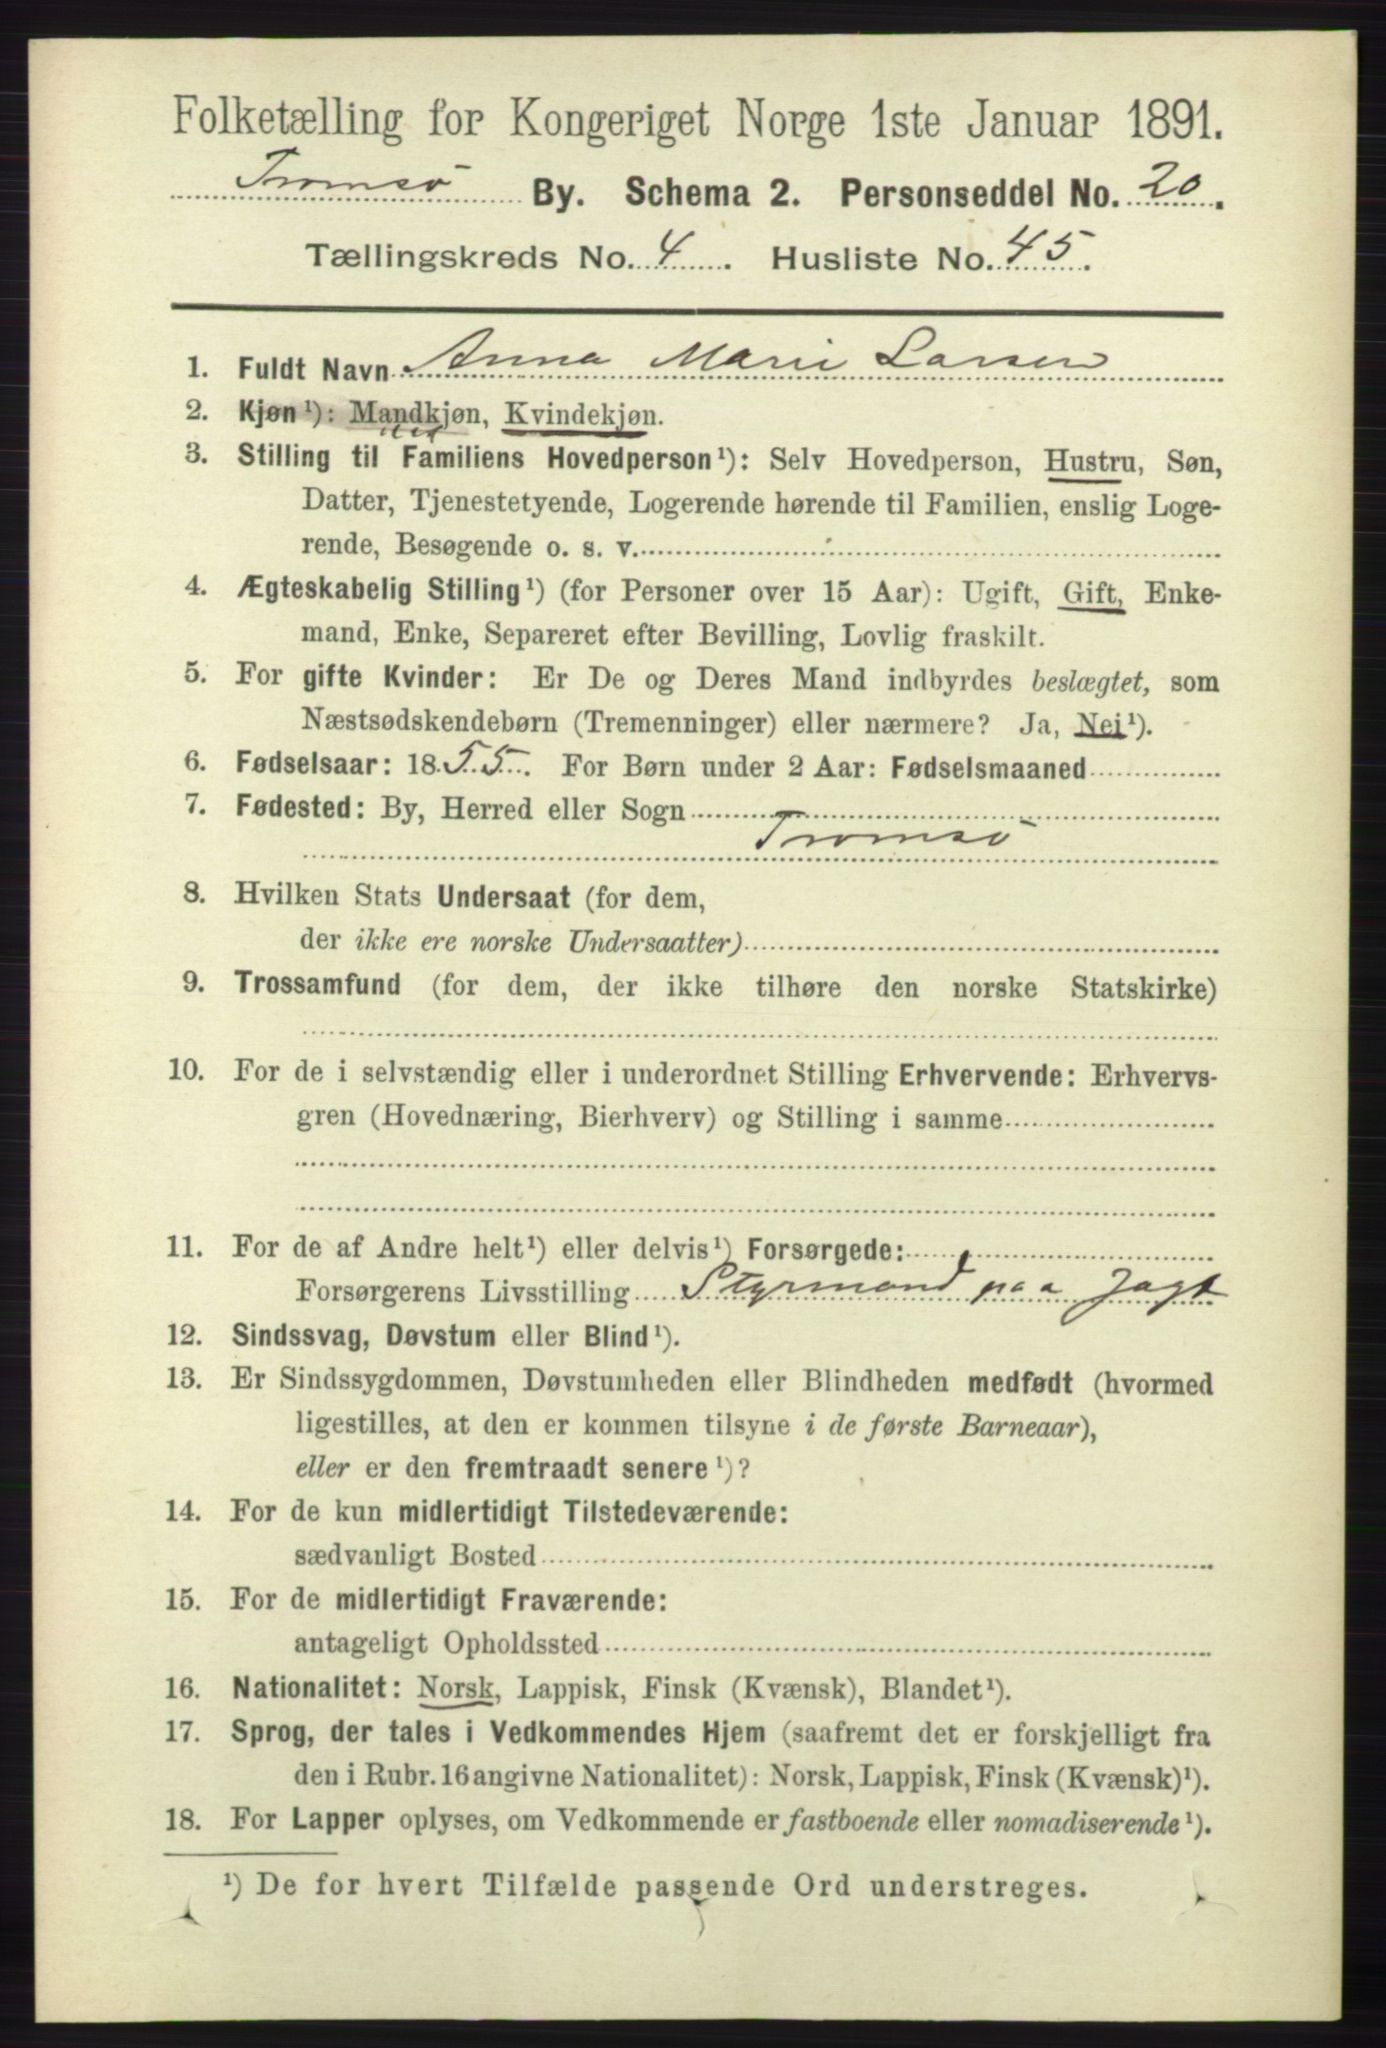 Folketælling for Kongeriget Norge 1ste Januar 1891.
Tromsø By. Schema 2. Personseddel No. 20.
Tællingskreds No. 4. Husliste No. 45.
1. Fuldt Navn Anna Marie Larsen
2. Kjøn¹): Mandkjøn, Kvindekjøn.
3. Stilling til Familiens Hovedperson¹): Selv Hovedperson, Hustru, Søn,
Datter, Tjenestetyende, Logerende hørende til Familien, enslig Loge-
rende, Besøgende o. s. v.
4. Ægteskabelig Stilling¹) (for Personer over 15 Aar): Ugift, Gift, Enke-
mand, Enke, Separeret efter Bevilling, Lovlig fraskilt.
5. For gifte Kvinder: Er De og Deres Mand indbyrdes beslægtet, som
Næstsødskendebørn (Tremenninger) eller nærmere? Ja, Nei¹).
6. Fødselsaar: 1855. For Børn under 2 Aar: Fødselsmaaned
7. Fødested: By, Herred eller Sogn
Tromsø
8. Hvilken Stats Undersaat (for dem,
der ikke ere norske Undersaatter)
9. Trossamfund (for dem, der ikke tilhøre den norske Statskirke)
10. For de i selvstændig eller i underordnet Stilling Erhvervende: Erhvervs-
gren (Hovednæring, Bierhverv) og Stilling i samme
11. For de af Andre helt¹) eller delvis¹) Forsørgede:
Forsørgerens Livsstilling Styrmand paa Jagt
12. Sindssvag, Døvstum eller Blind¹).
13. Er Sindssygdommen, Døvstumheden eller Blindheden medfødt (hvormed
ligestilles, at den er kommen tilsyne i de første Barneaar),
eller er den fremtraadt senere¹)?
14. For de kun midlertidigt Tilstedeværende:
sædvanligt Bosted
15. For de midlertidigt Fraværende:
antageligt Opholdssted
16. Nationalitet: Norsk, Lappisk, Finsk (Kvænsk), Blandet¹).
17. Sprog, der tales i Vedkommendes Hjem (saafremt det er forskjelligt fra
den i Rubr. 16 angivne Nationalitet): Norsk, Lappisk, Finsk (Kvænsk)¹).
18. For Lapper oplyses, om Vedkommende er fastboende eller nomadiserende¹).
¹) De for hvert Tilfælde passende Ord understreges.